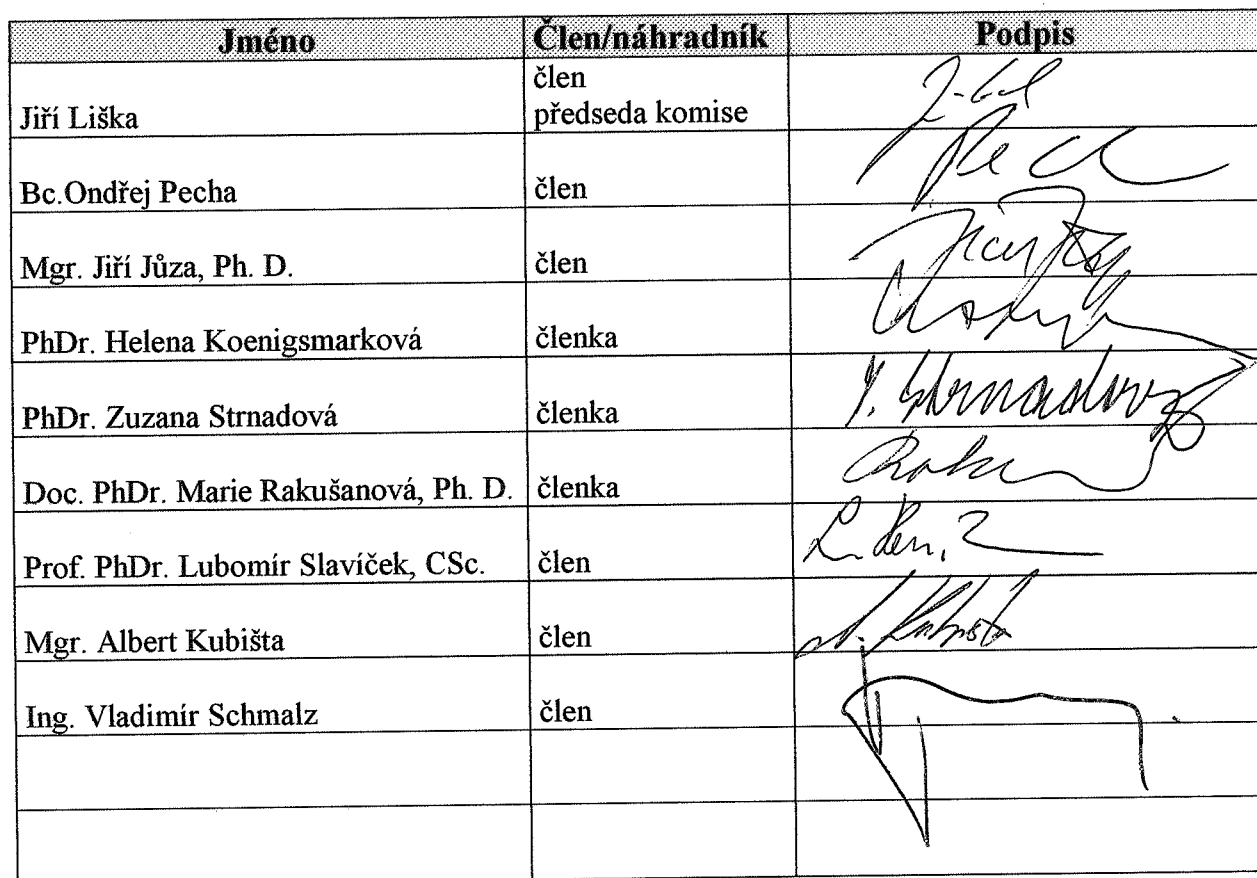 Jméno Člen/náhradník Podpis
člen
Jiří Liška předseda komise
Bc.Ondřej Pecha člen
Mgr. Jiří Jůza, Ph. D. člen
PhDr. Helena Koenigsmarková členka
PhDr. Zuzana Strnadová členka
Doc. PhDr. Marie Rakušanová, Ph. D. členka
Prof. PhDr. Lubomír Slavíček, CSc. člen
Mgr. Albert Kubišta člen
Ing. Vladimír Schmalz člen